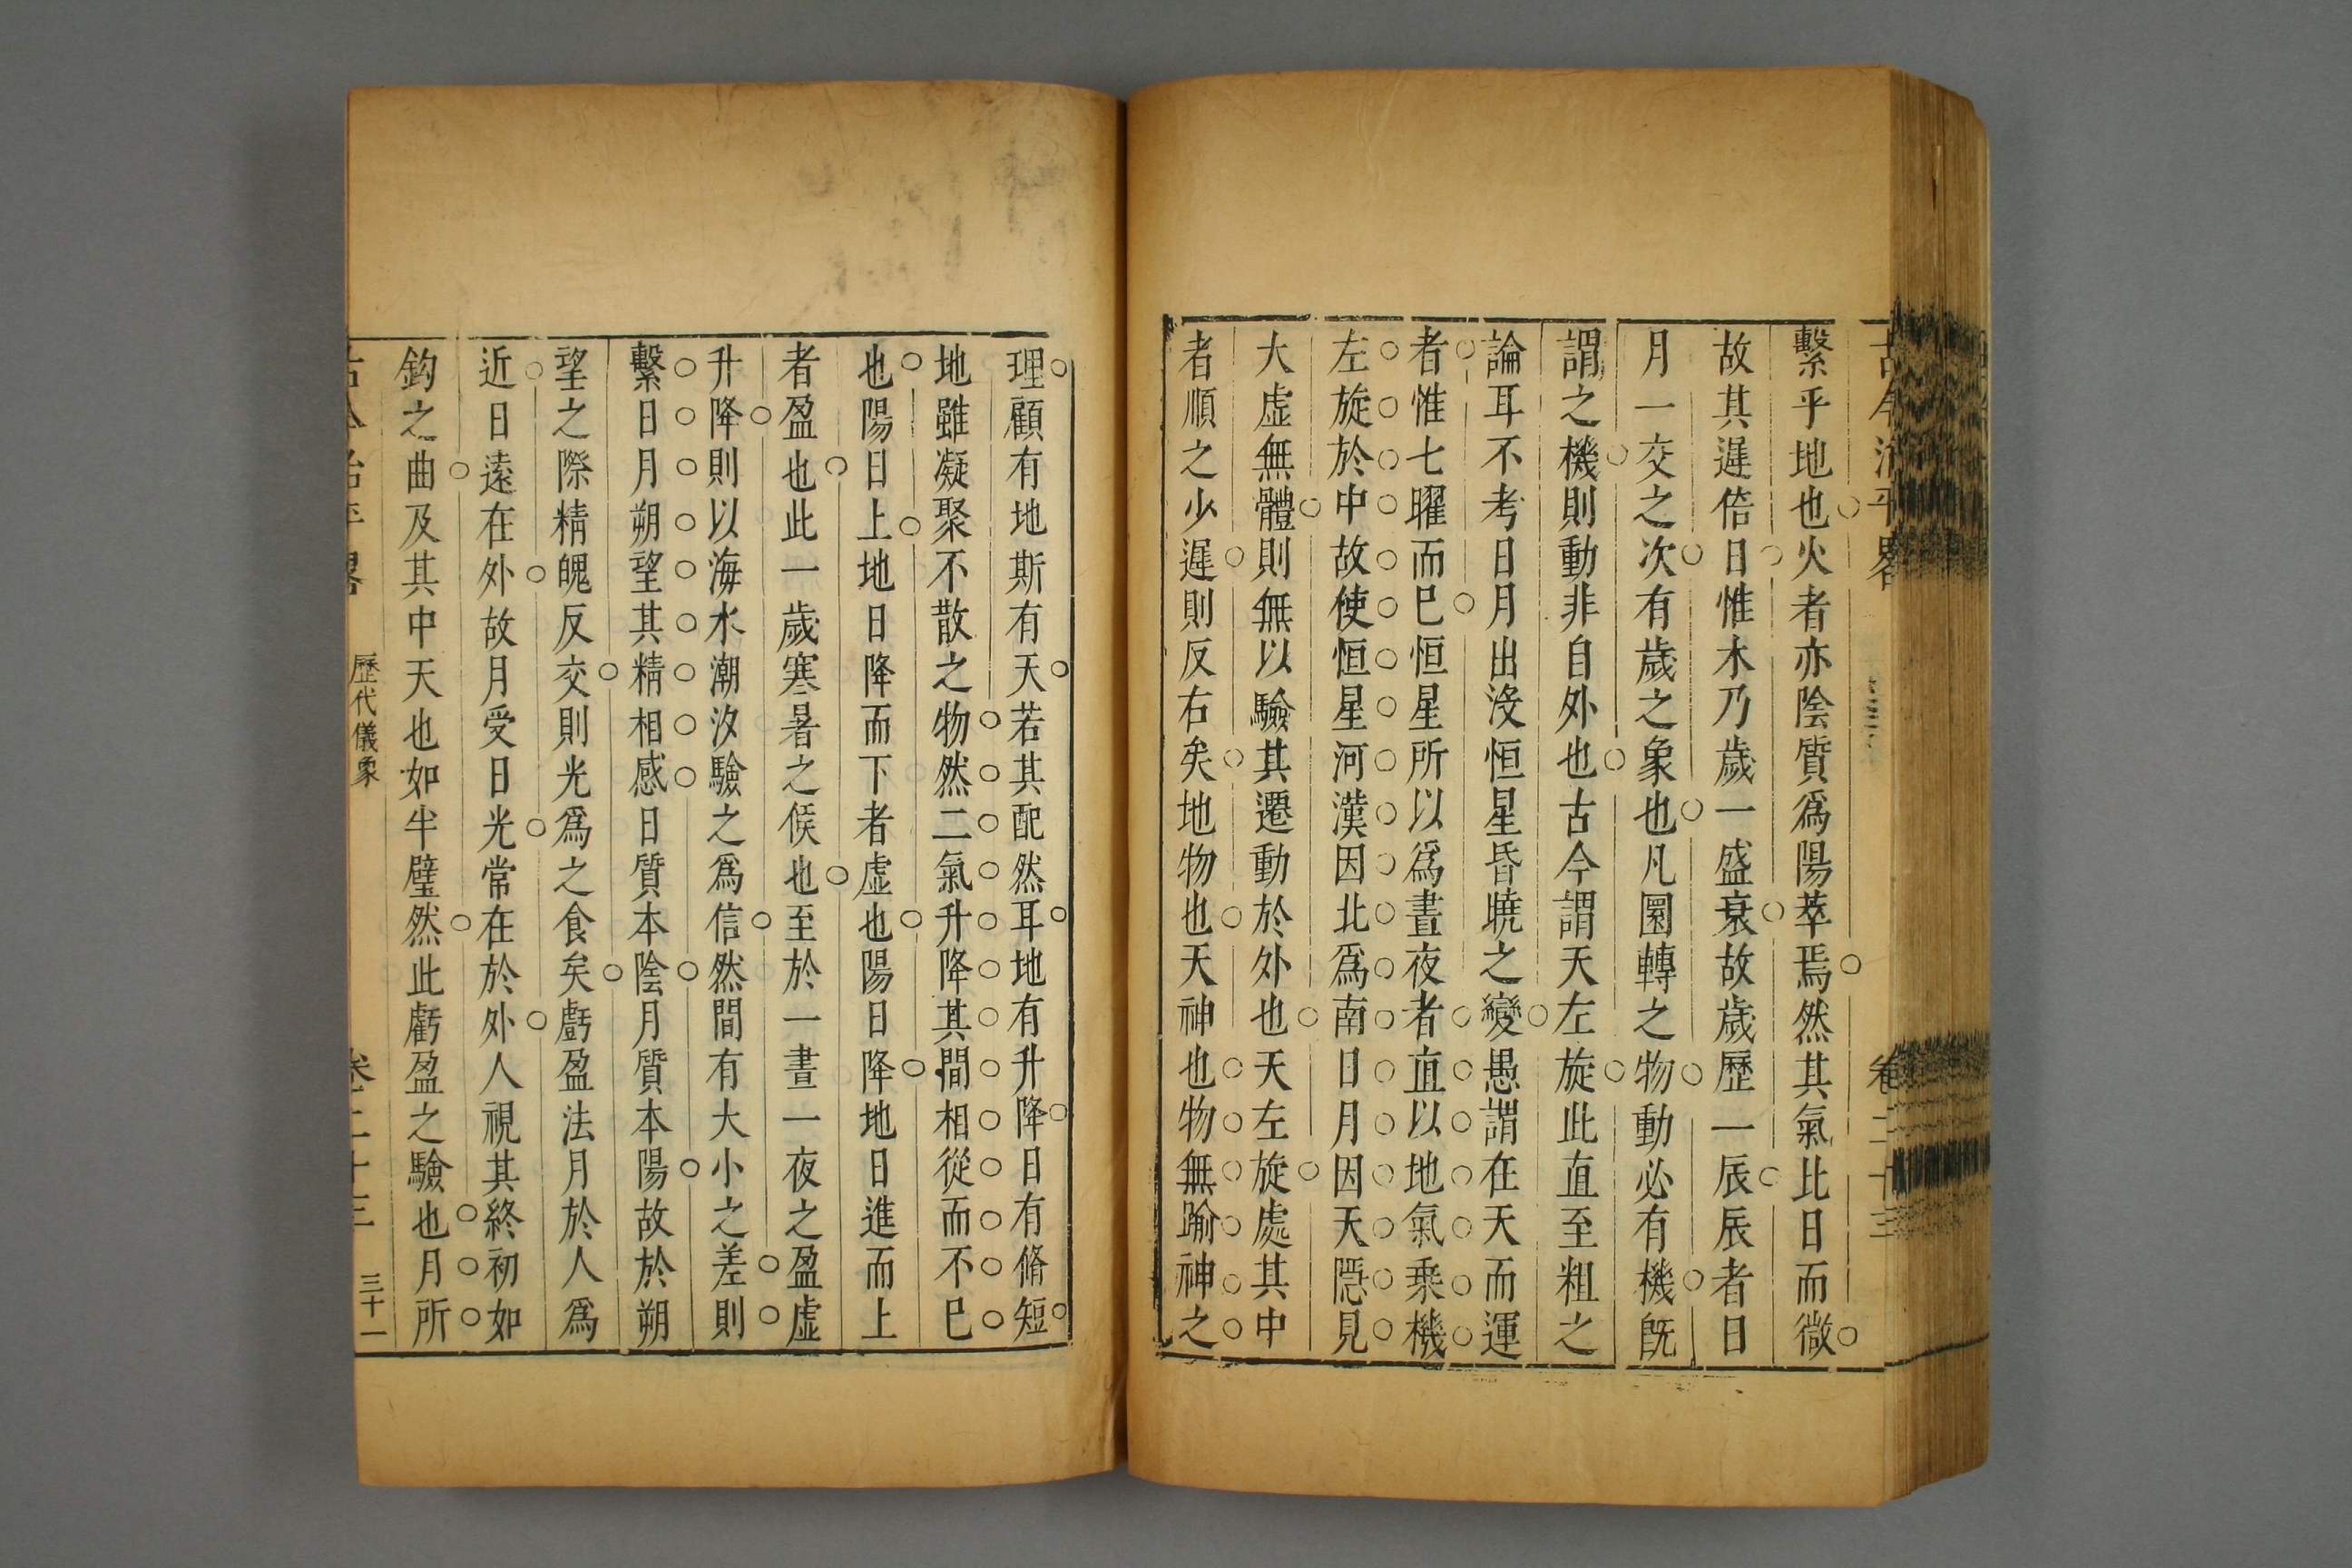 繫乎地也火者亦陰質爲陽萃焉然其氣比日而微
故其遲倍日惟木乃歲一盛衰故歲歷一辰辰者日
月一交之次有歲之象也凡圜轉之物動必有機旣
謂之機則動非自外也古今謂天左旋此直至粗之
論耳不考日月出沒恒星昏曉之變愚謂在天而運
者惟七曜而巳恒星所以爲晝夜者直以地氣乘機
左旋於中故使恒星河漢因北爲南日月因天隱見
大虛無體則無以驗其遷動於外也天左旋處其中
者順之少遲則反右矣地物也天神也物無踰神之
理顧有地斯有天若其配然耳地有升降日有脩短
地雖凝聚不散之物然二氣升降其間相從而不巳
也陽日上地日降而下者虛也陽日降地日進而上
者盈也此一歲寒暑之候也至於一晝一夜之盈虛
升降則以海水潮汐驗之爲信然間有大小之差則
繫日月朔望其精相感日質本陰月質本陽故於朔
望之際精魄反交則光爲之食矣虧盈法月於人爲
近日遠在外故月受日光常在於外人視其終初如
鈎之曲及其中天也如半璧然此虧盈之驗也月所
古今治平畧 歷代儀象 卷二十三 三十一